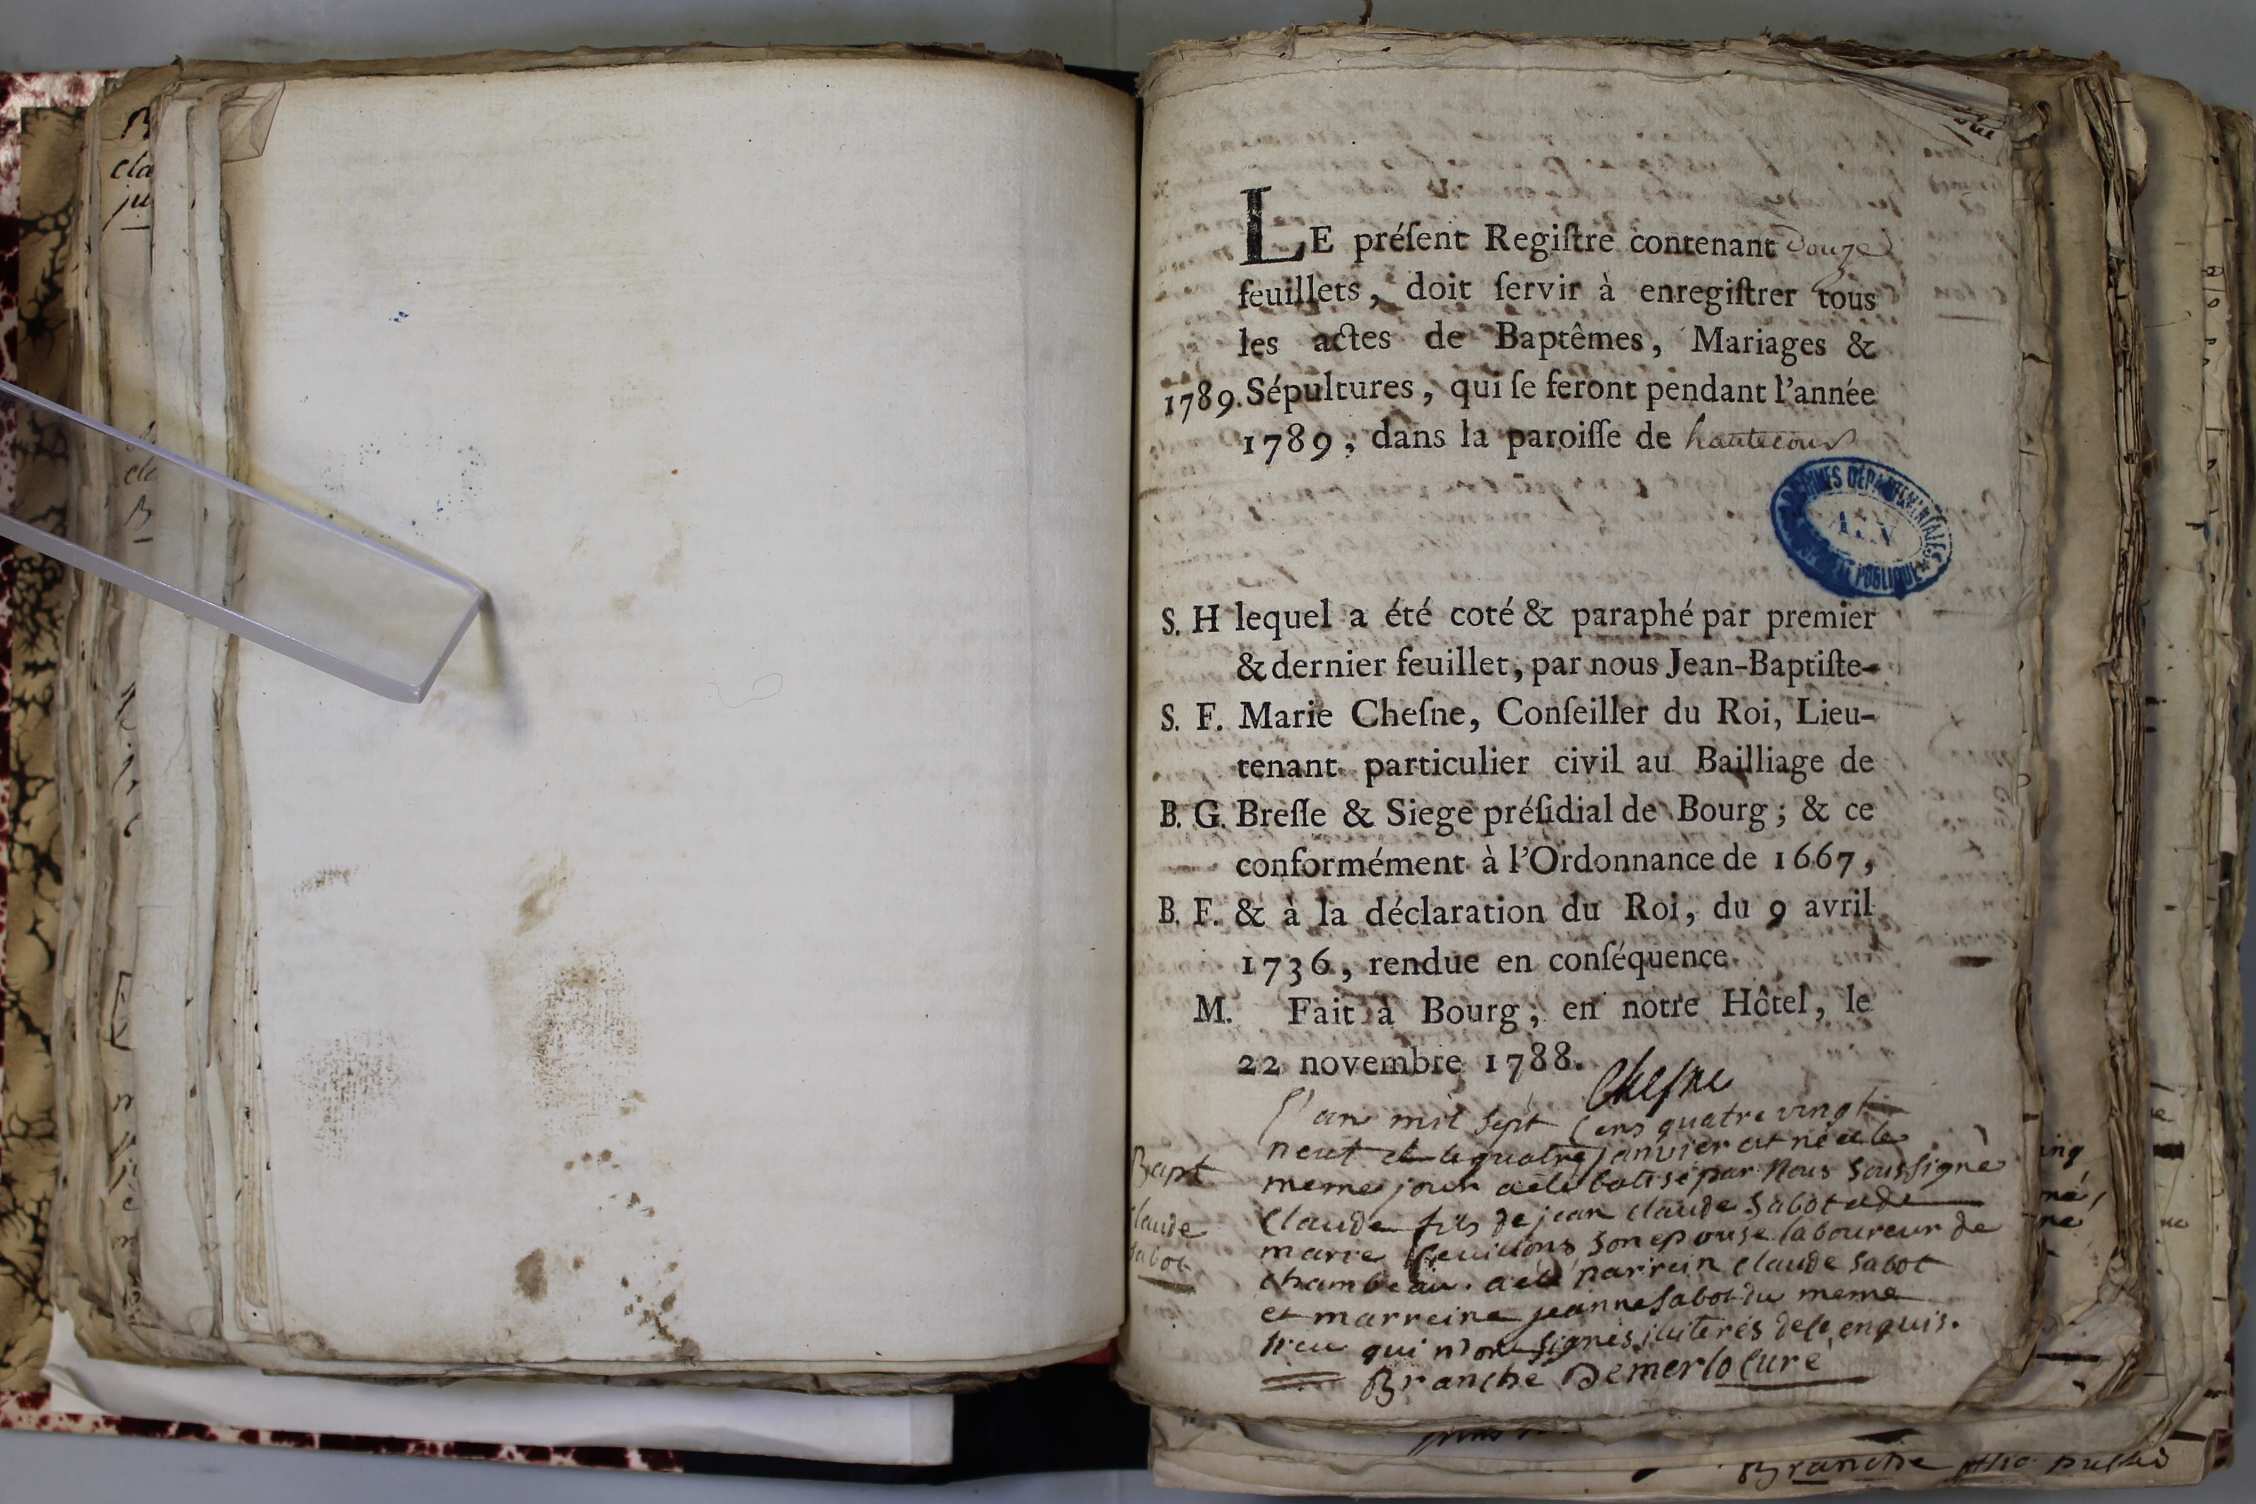 LE préſent Regiſtre contenant Douze
feuillets, doit ſervir à enregiſtrer tous
les actes de Baptêmes, Mariages &
1789. Sépultures, qui ſe feront pendant l'année
1789, dans la paroiſſe de hautecour
ARCHIVES DÉPARTEMENTALES
AIN
PUBLIQUE
S. H lequel a été coté & paraphé par premier
& dernier feuillet, par nous Jean-Baptiſte-
S. F. Marie Cheſne, Conſeiller du Roi, Lieu-
tenant particulier civil au Bailliage de
B. G. Breſſe & Siege préſidial de Bourg ; & ce
conformément à l'Ordonnance de 1667,
B. F. & à la déclaration du Roi, du 9 avril
1736, rendue en conſéquence.
M. Fait à Bourg, en notre Hôtel, le
22 novembre 1788.
Cheſne
L'an mil sept cens quatre vingt
neuf et le quatre janvier est né et le
Bapt meme jour a eté batisé par Nous soussigné
claude Claude fils de jean claude sabot et de
sabot marie son epouse laboureur de
chambeau. a eté parrein claude sabot
et marreine jeanne sabot du meme
lieu qui n'ont signés illiterés de ce enquis.
Branche Demerlo curé
Branche